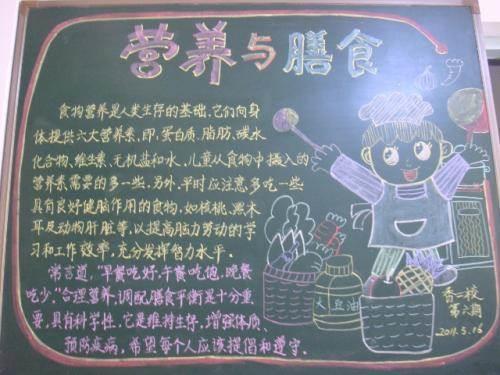 营养与膳食
食物营养是人类生存的基础.它们向身
体提供六大营养素,即:蛋白质.脂肪.碳水
化合物、维生素、无机盐和水.儿童从食物中摄入的
营养素需要的多一些.另外,平时应注意多吃一些
具有良好健脑作用的食物,如核桃、黑木
耳及动物肝脏等,以提高脑力劳动的学
习和工作效率,充分发挥智力水平.
常言道,"早餐吃好,午餐吃饱,晚餐
吃少."合理营养,调配膳食平衡是十分重
要,具有科学性.它是维持生存,增强体质、
预防疾病,希望每个人应该提倡和遵守.
大豆油
香一校
第六期
2011.5.16